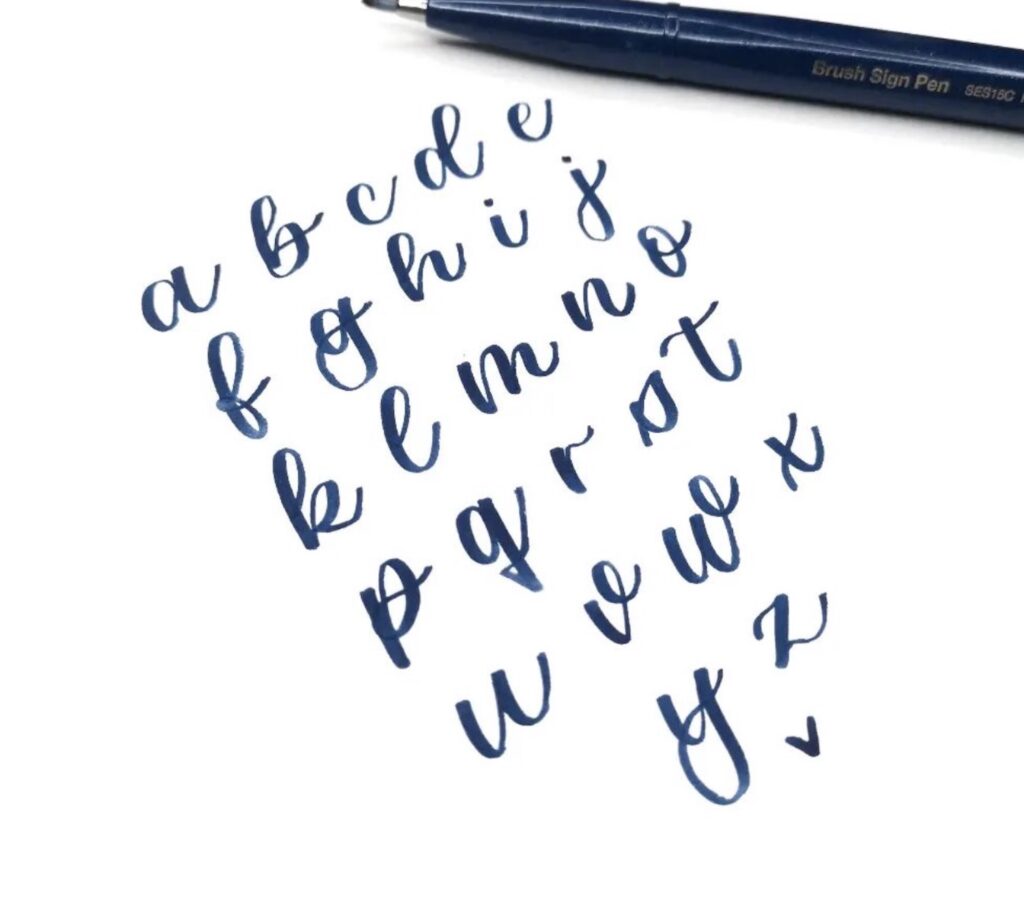 Brush Sign Pen SES15C
a b c d e
f g h i j
k l m n o
p q r s t
u v w x
y z